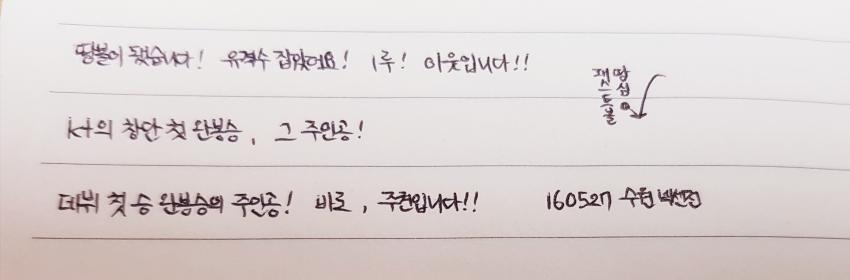 땅볼이 됐습니다! 유격수 잡았어요! 1루! 아웃입니다!!
kt의 창단 첫 완봉승, 그 주인공!
데뷔 첫 승 완봉승의 주인공! 바로, 주권입니다!! 160527 수원 넥센전